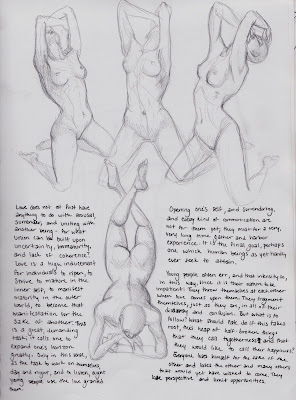 Love does not at first have
anything to do with arousal,
surrender, and uniting with
another being - for what
union can be built upon
uncertainty, immaturity,
and lack of coherence?
Love is a high inducement
for individuals to ripen, to
strive to mature in the
inner self, to manifest
maturity in the outer
world, to become that
manifestation for the
sake of another. This
is a great, demanding
task; it calls one to
expand one's horizon
greatly. Only in this sense,
as the task to work on themselves
day and night, and to listen, ought
young people use the love granted
them.
Opening one's self, and surrendering,
and every kind of communication are
not for them yet; they must for a very,
very long time gather and harbor
experience. It is the final goal, perhaps
one which human beings as yet hardly
ever seek to attain.
Young people often err, and that intensely so,
in this way, since it is their nature to be
impatient: They throw themselves at each other
when love comes upon them. They fragment
themselves, just as they are, in all of their
disarray and confusion. But what is to
follow? What should fate do if this takes
root, this heap of half-broken things
that they call togetherness and that
they would like to call their happiness?
Everyone loses himself for the sake of the
other and loses the other and many others
that would yet have wanted to come. They
lose perspective and limit opportunities.